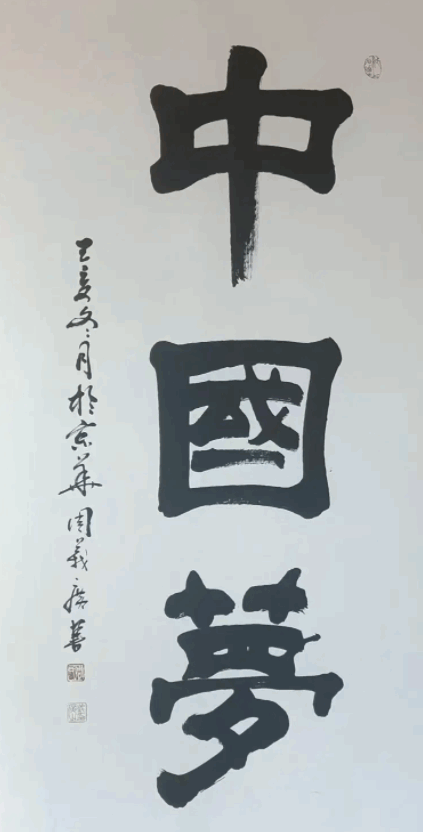 中國夢
己亥冬月於京華周義廣書